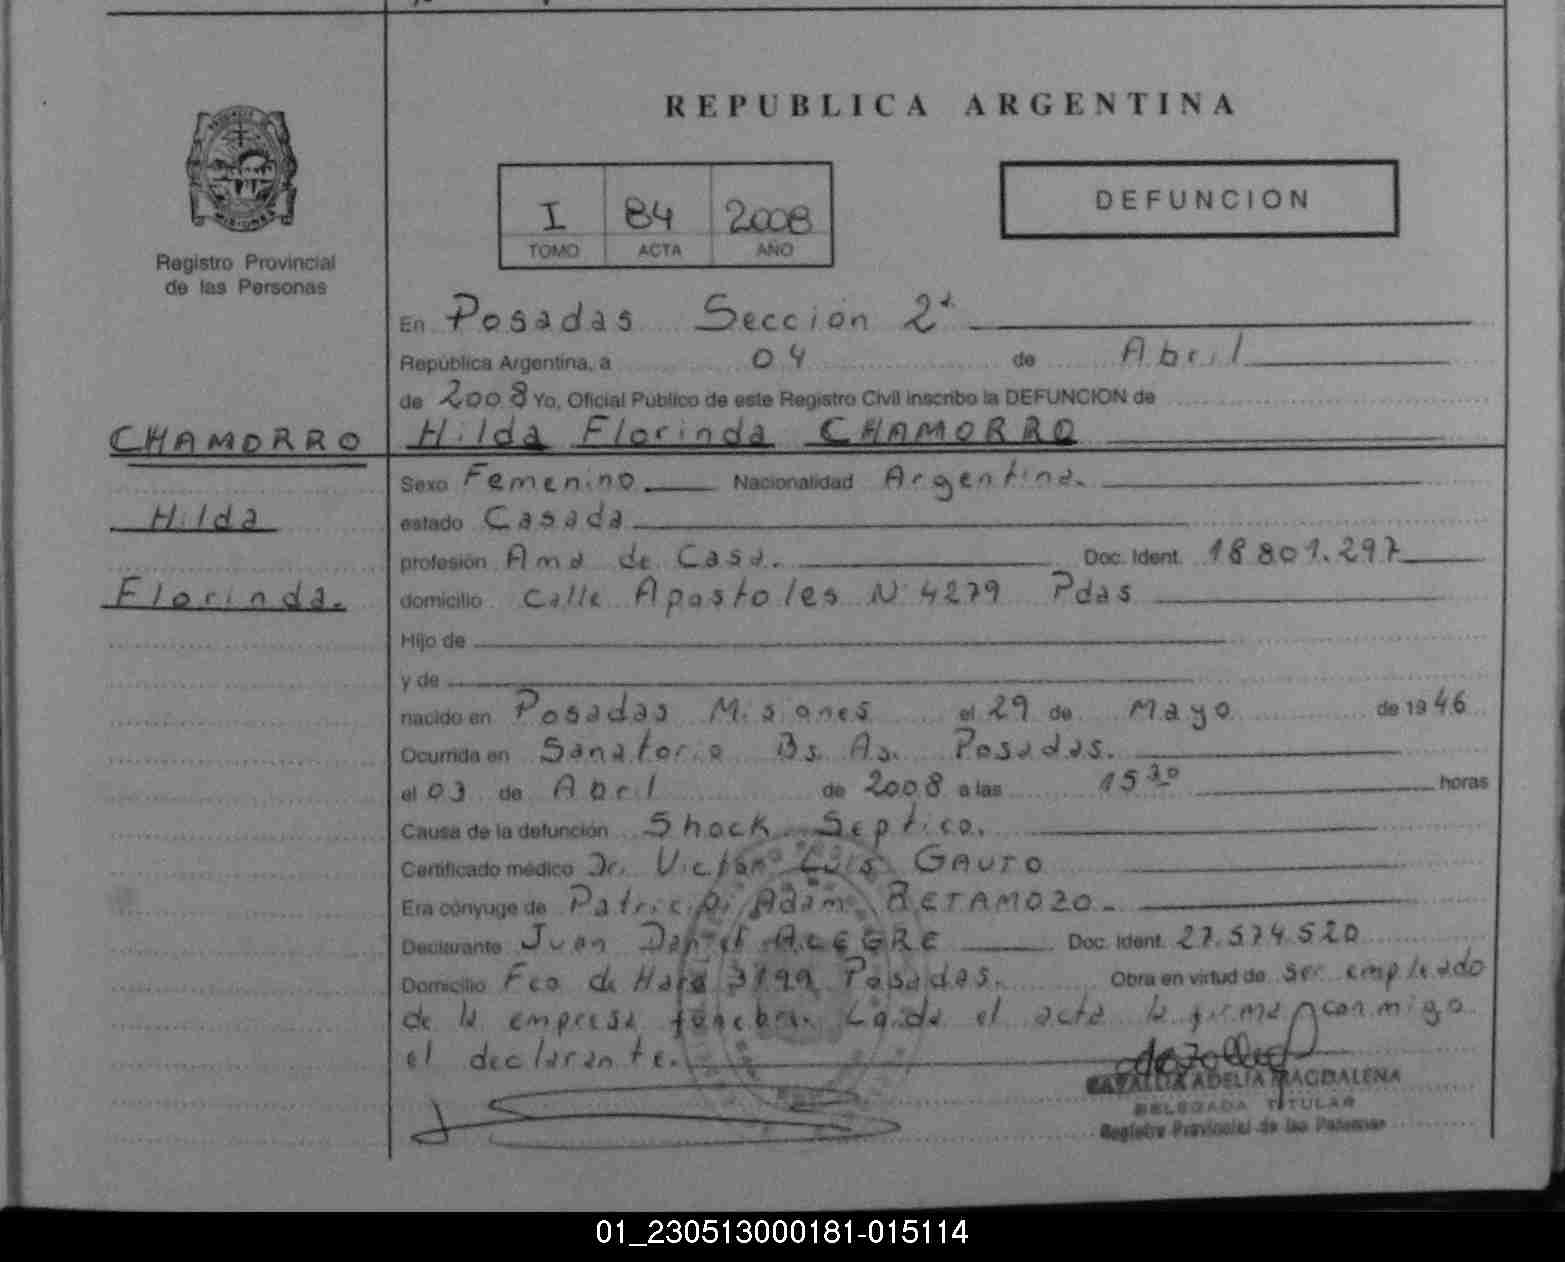 REPUBLICA ARGENTINA
MISIONES
Registro Provincial
de las Personas
I 84 2008
TOMO ACTA AÑO
DEFUNCION
En Posadas Sección 2ª
República Argentina, a 04 de Abril
de 2008 Yo, Oficial Público de este Registro Civil inscribo la DEFUNCION de
CHAMORRO Hilda Florinda CHAMORRO
Sexo Femenino Nacionalidad Argentina.
Hilda
estado Casada
profesión Ama de Casa. Doc. Ident. 18 801.297
Florinda.
domicilio Calle Apostoles N 4279 Pdas
Hijo de
y de
nacido en Posadas Misiones el 29 de Mayo de 1946
Ocurrida en Sanatorio Bs. As. Posadas.
el 03 de Abril de 2008 a las 15 30 horas
Causa de la defunción Shock Septico.
Certificado médico Dr. Victor Luis GAUTO
Era cónyuge de Patricio Adam RETAMOZO.
Declarante Juan Daniel ALEGRE Doc. Ident. 27.574.520
Domicilio Fco de Haro 3199 Posadas. Obra en virtud de ser empleado
de la empresa funebre. Leida el acta la firma conmigo
el declarante.
ADELIA MAGDALENA
DELEGADA TITULAR
Registro Provincial de las Personas
01_230513000181-015114